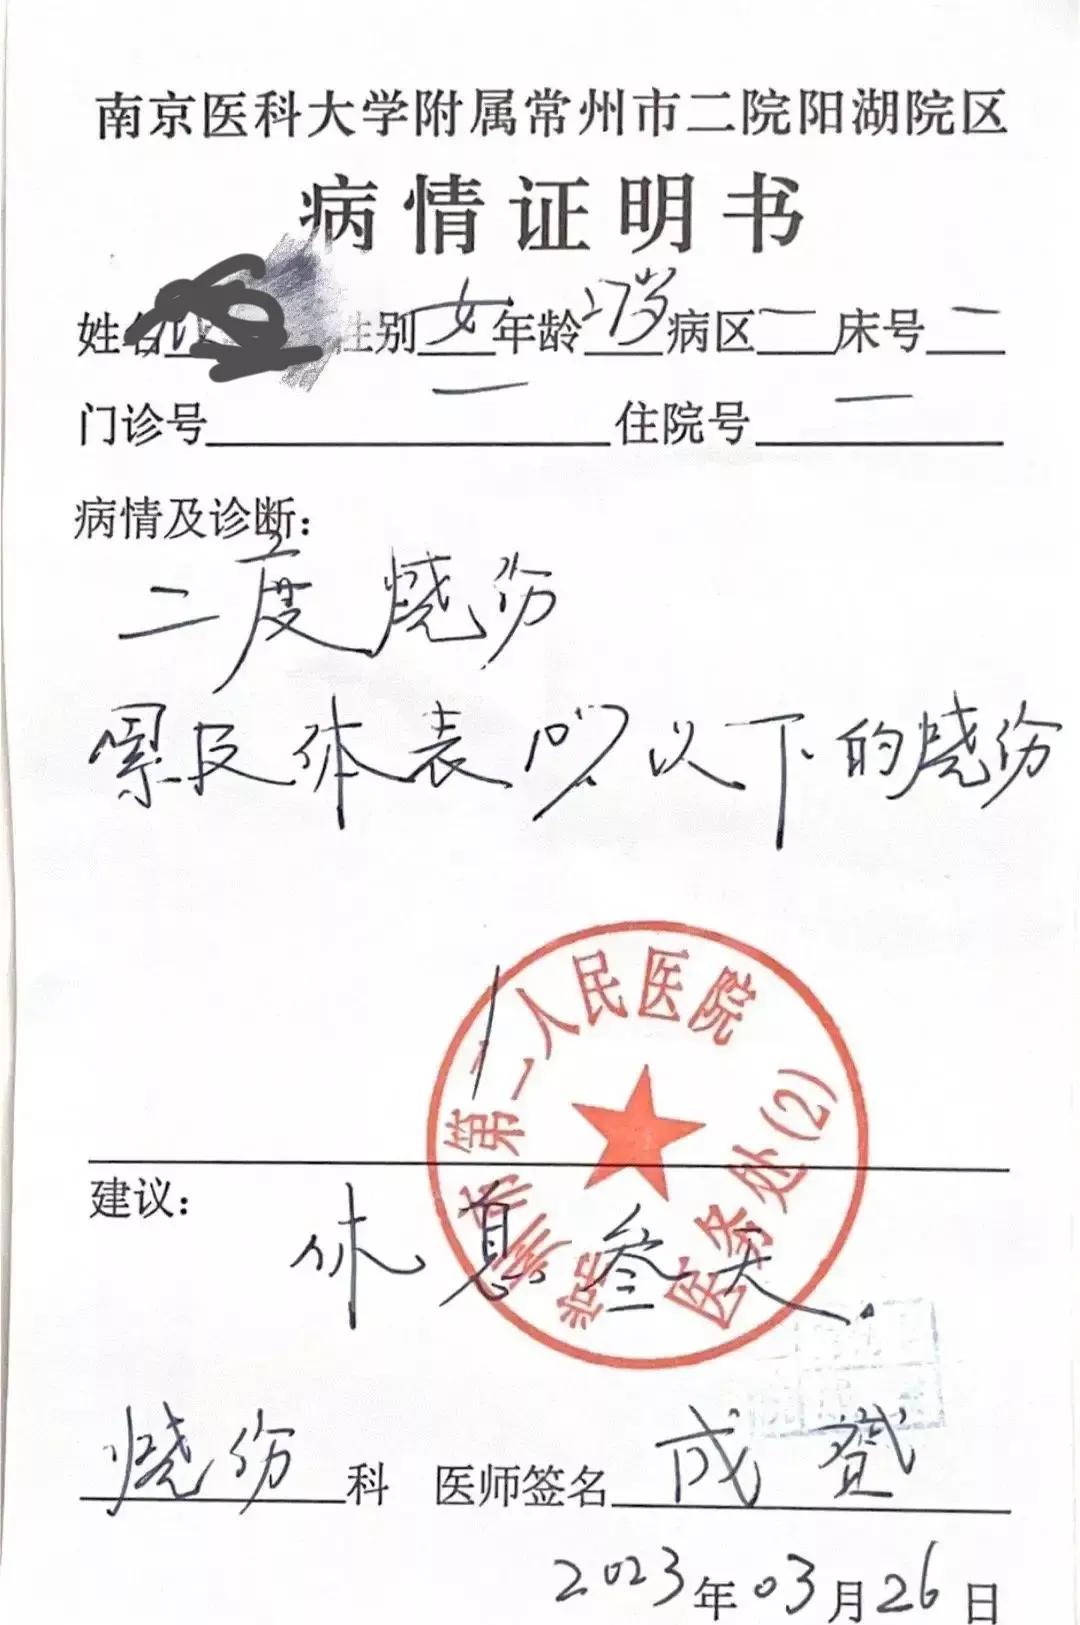 南京医科大学附属常州市二院阳湖院区
病情证明书
姓名 性别 女 年龄 27岁 病区 一 床号 一
门诊号 一 住院号 一
病情及诊断:
二度烧伤
累及体表10%以下的烧伤
常州市第一人民医院
医务处(2)
建议:
休息叁天.
烧伤 科 医师签名 成贺
2023年03月26日